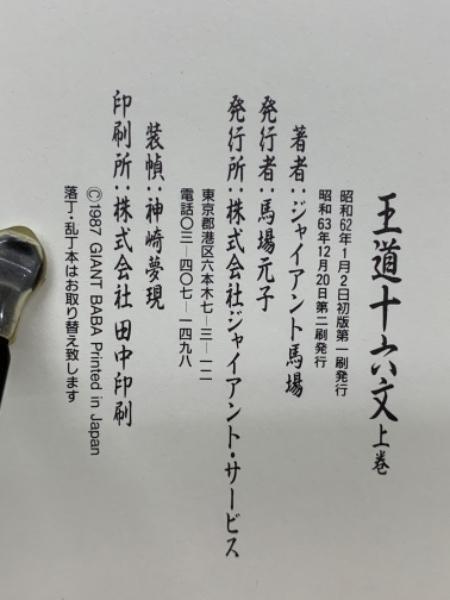 王道十六文 上巻
昭和62年1月2日初版第一刷発行
昭和63年12月20日第二刷発行
著者:ジャイアント馬場
発行者:馬場元子
発行所:株式会社ジャイアント・サービス
東京都港区六本木七—三—一二
電話〇三—四〇七—一四九八
装幀:神崎夢現
印刷所:株式会社 田中印刷
©1987 GIANT BABA Printed in Japan
落丁・乱丁本はお取り替え致します